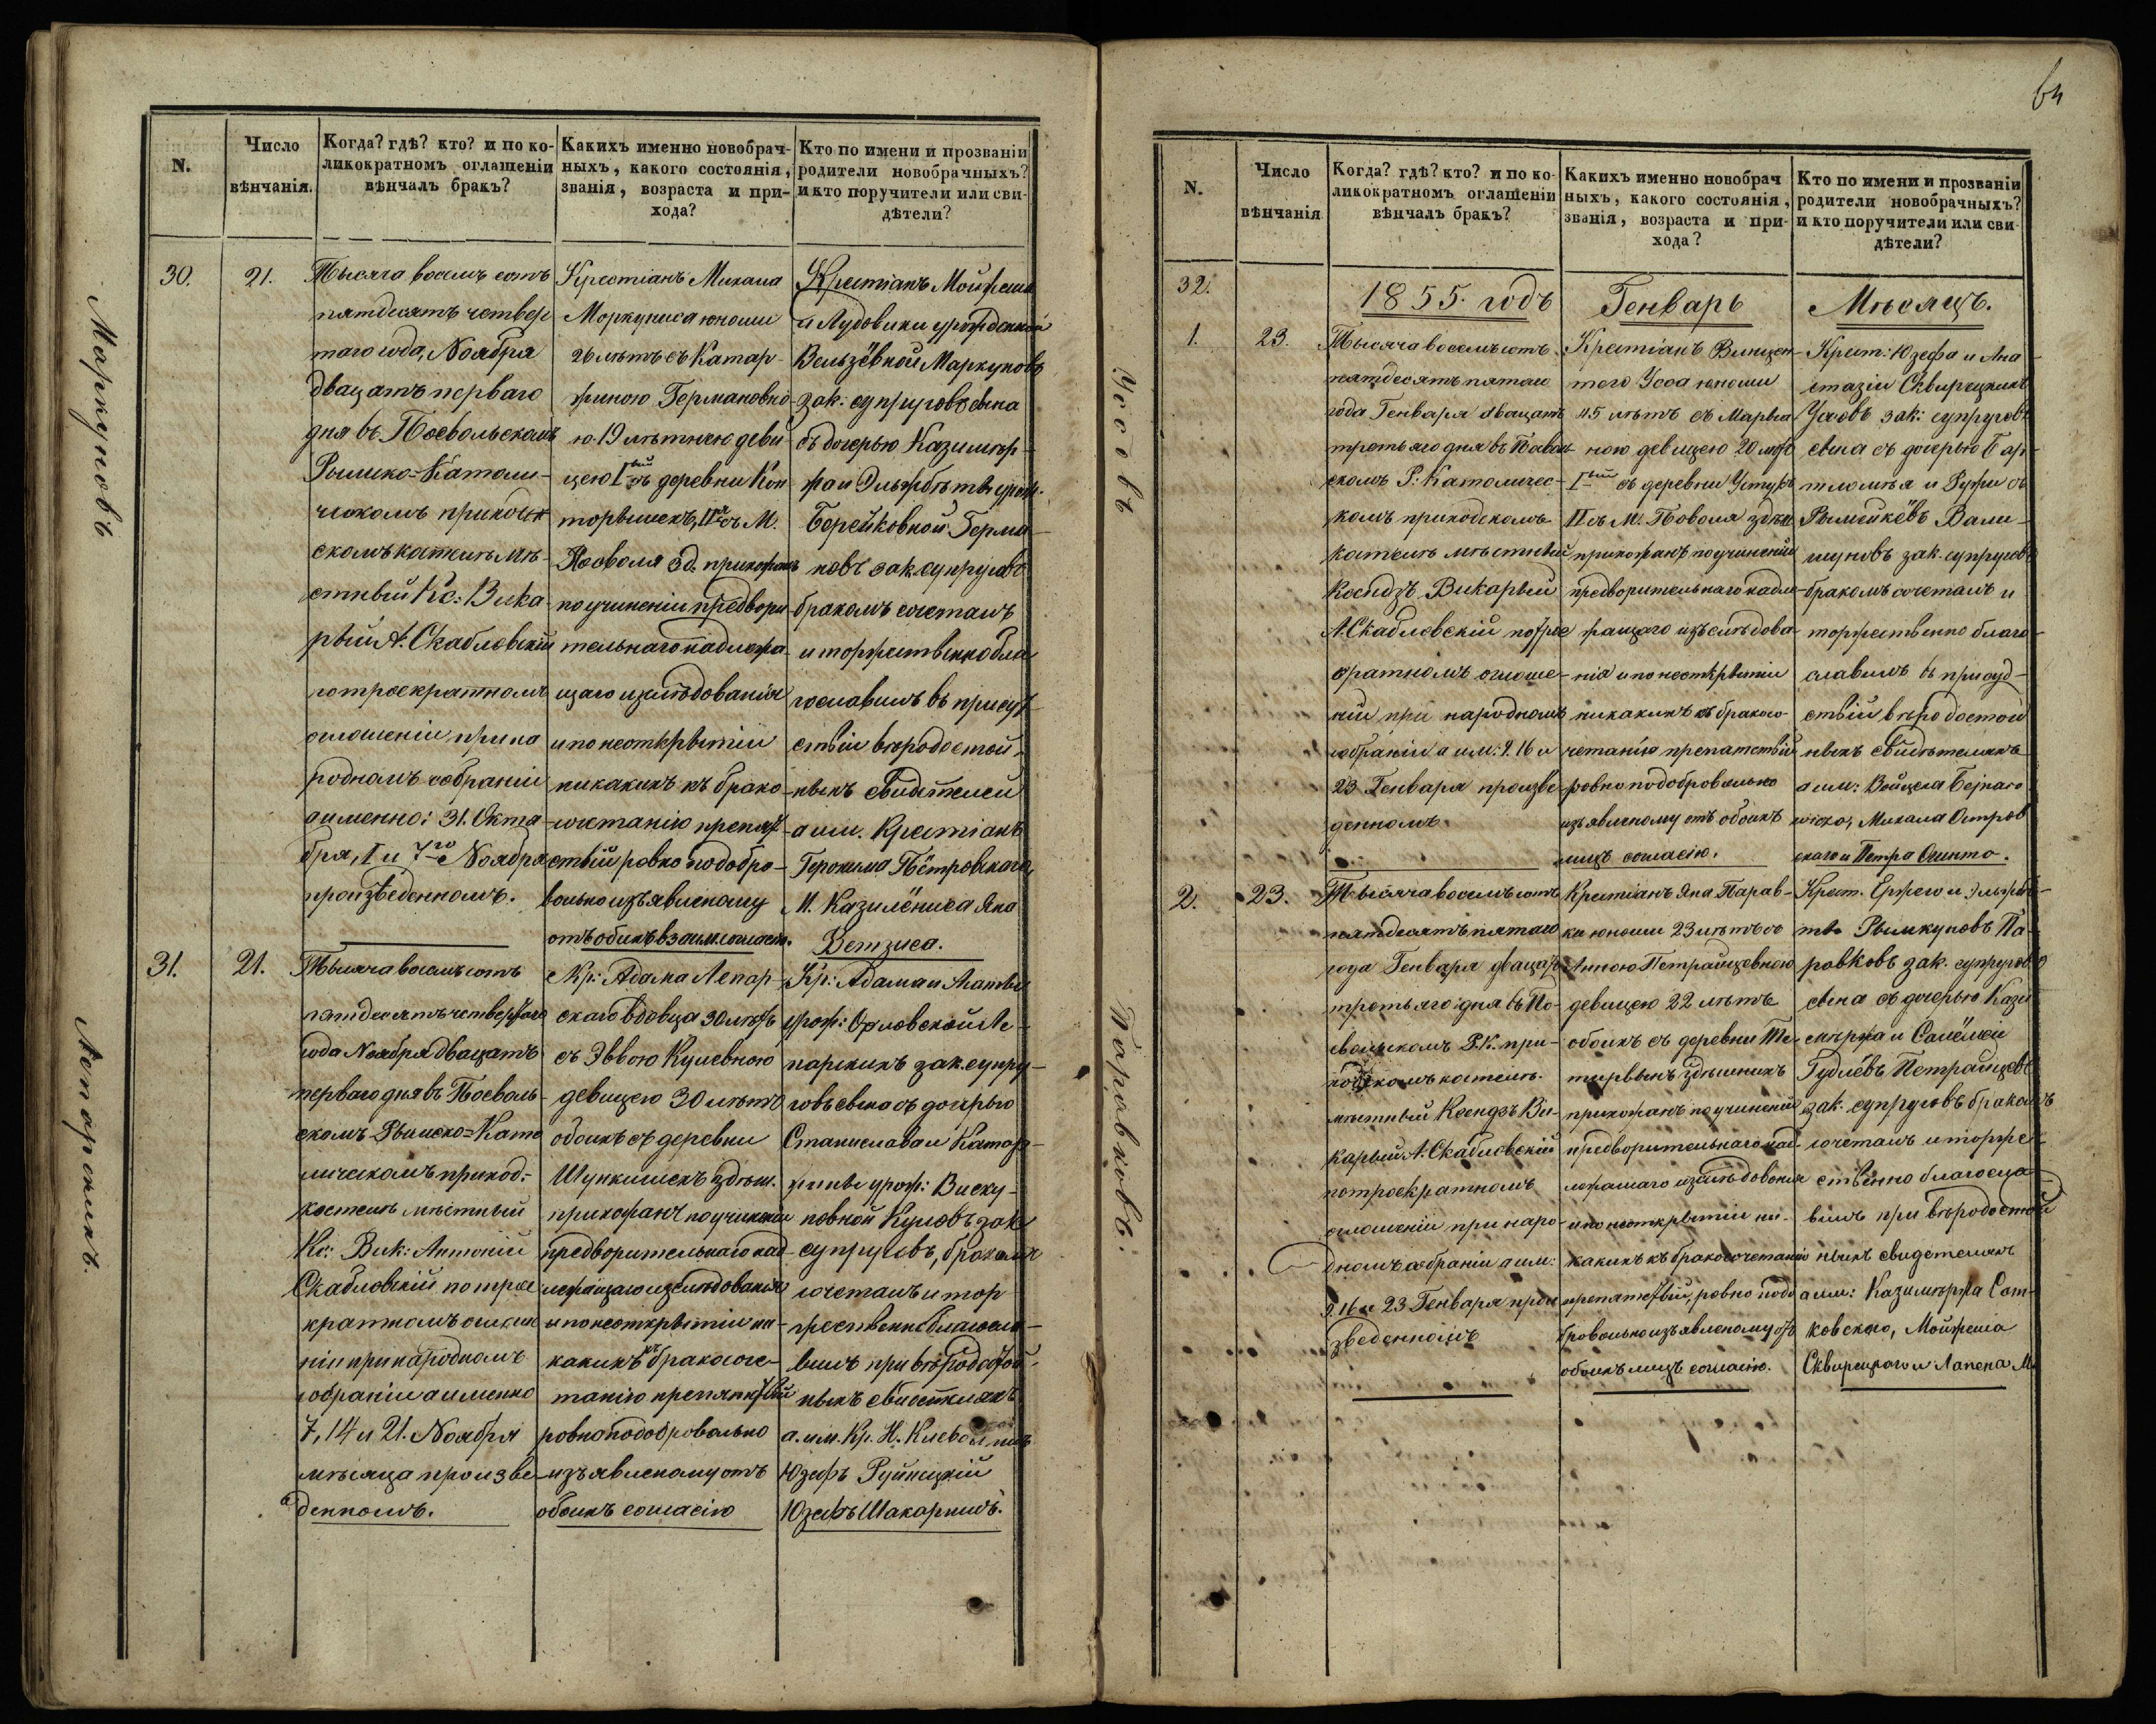 N.
Число
вѣнчанія.
Когда? гдѣ? кто? и по ко-
ликократномъ оглашеніи
вѣнчалъ бракъ?
Какихъ именно новобрач-
ныхъ, какого состоянія,
званія, возраста и при-
хода?
Кто по имени и прозванію
родители новобрачныхъ?
и кто поручители или сви-
дѣтели?
Маркуновъ
30.
21.
Тысяча восемь сотъ
пятдесятъ четвер
таго года, Ноября
двацать перваго
дня въ Посвольскомъ
Римско-Католи-
ческомъ приход
скомъ костелѣ мѣ-
стный Кс: Вика
рый А. Скабловскій
потроекратномъ
оглошеніи, при на
родномъ собраніи
аименно: 31. Октя
бря, 1 и 7го Ноября
произведенномъ.
Крестіанъ Михала
Моркуниса юноши
26 лѣтъ съ Катар-
жиною Германовно
ю 19 лѣтнею деви
цею Iвый съ деревни
IIя съ М.
Посволя зд. прихожанъ
поучиненіи предвори
тельнаго надлежа
щаго изслѣдованія
ипо неоткрытіи
никакихъ къ брако
сочетанію препят
ствій ровно подобро-
вольно изъявленому
отъ обоихъ взаим. согласію.
Крестіанъ Мойжеша
и Лудовики урожденной
Маркуновъ
зак: супруговъ сына
съ дочерью Казимир-
жа и Эльжбѣты урож.
Борейковной Герма
новъ зак. супруговъ
бракомъ сочеталъ
и торжественно бла
гославилъ въ присут
ствіи вѣродостой-
ныхъ свидѣтелей
а им. Крестіанъ
Геронима Пётровскаго,
М. Казилёниса Яна
31.
21.
Лепарскихъ.
Тысяча восемь сотъ
пятдесятъ четвертаго
года Ноября двацать
перваго дня въ Посволь-
скомъ Римско-Като
лическомъ приход:
костелѣ мѣстный
Кс: Вик: Антоній
Скабловскій по трое
кратномъ оглоше
ніи при народномъ
собраніи а именно
7, 14 и 21. Ноября
мѣсяца произве
денномъ.
Кр: Адама Лепар-
скаго вдовца 30 лѣтъ
съ Эввою Кулевною
девицею 30 лѣтъ
обоихъ съ деревни
здѣш.
прихожанъ поучиненіи
предворительнаго над
лежащаго изслѣдованія
и по неоткрытіи ни-
какихъ къ бракосоче-
танію препятствій
ровно подобровольно
изъявленому отъ
обоихъ согласію
Кр: Адама и Агаты
урож: Орловской Ле-
парскихъ зак. супру-
говъ сына съ дочерью
Станислава и Катар-
жины урож: Виску-
повной Куловъ зак
супруговъ, бракомъ
сочеталъ и тор
жественно благосло-
вилъ при вѣродостой-
ныхъ свидѣтеляхъ
а. им. Кр. Н.
Юзефъ Руйницкій
Юзефъ
64
N.
Число
вѣнчанія
Когда? гдѣ? кто? и по ко-
ликократномъ оглашеніи
вѣнчалъ бракъ?
Какихъ именно новобрач
ныхъ, какого состоянія,
званія, возраста и при-
хода?
Кто по имени и прозванію
родители новобрачныхъ?
и кто поручители или сви-
дѣтели?
32.
1855. годъ
Генварь
Мѣсяцъ.
1.
23.
Усовъ
Тысяча восемь сотъ
пятдесятъ пятаго
года Генваря двацать
третьяго дня въ Посволь
скомъ Р: Католичес-
комъ приходскомъ
костелѣ мѣстный
Ксендзъ Викарый
А. Скабловскій потрое
кратномъ оглоше-
ніи при народномъ
собраніи а им: 9. 16 и
23 Генваря произве
денномъ.
Крестіанъ Винцен-
того Усса юноши
45 лѣтъ съ Марьян
ною девицею 20 лѣтъ
Iвый съ деревни
II съ М. Посволя здѣш
прихожанъ поучиненіи
предворительнаго надле
жащаго изъслѣдова-
нія ипо неоткрытіи
никакихъ къ бракосо-
четанію препятствій
ровно подобровольно
изъявленому отъ обоихъ
лицъ согласію.
Крест: Юзефа и Ана
стазіи Сквирецкихъ
Усовъ зак: супруговъ
сына съ дочерью Бар-
тломѣя и Руфи съ
зак. супруговъ
бракомъ сочеталъ и
торжественно благо-
славилъ въ присуд-
ствіи вѣродостой
ныхъ свидѣтеляхъ
а им: Войцеха
Михала Остров
скаго и Петра Огинто.
2.
23.
Паровковъ.
Тысяча восемь сотъ
пятдесятъ пятаго
года Генваря двацать
третьяго дня въ По-
свольскомъ Р.К. при-
ходскомъ костелѣ
мѣстный Ксендзъ Ви-
карый А. Скабловскій
потроекратномъ
оглошеніи при наро-
дномъ собраніи а им:
9. 16 и 23 Генваря прои
зведенномъ
Крестіанъ Яна Парав-
ка юноши 23 лѣтъ съ
Анною Петрайцевною
девицею 22 лѣтъ
обоихъ съ деревни Те-
здѣшнихъ
прихожанъ поучиненіи
предворительнаго над
лежащаго изслѣдованія
и по неоткрытіи ни-
какихъ къ бракосочетанію
препятствій, ровно подо
бровольно изъявленому отъ
обоихъ лицъ согласію.
Крест. Ержего и Эльжбѣ-
ты Рымкуновъ Па-
ровковъ зак. супруговъ
сына съ дочерью Кази
мѣржа и Салёмеи
Гудлёвъ Петрайцевъ
зак. супруговъ бракомъ
сочеталъ и торже-
ственно благосла
вилъ при вѣродостой
ныхъ свидетеляхъ
а им: Казимѣржа Сот-
ковскаго, Мойжеша
Сквирецкаго и Лапена М.